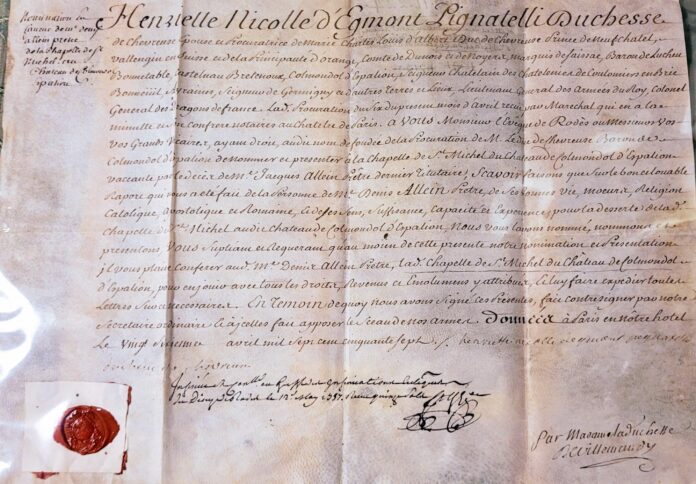 Nomination en
faveur de mr. denis
allein pretre
de la Chapelle de St
Michel
Chateau de
Henriette Nicolle d'Egmont Pignatelli Duchesse
de Chevreuse Epouse et Procuratrice de Marie Charles Louis d'albert, Duc de Chevreuse Prince de Neufchatel,
vallengin en Suisse et de la Principauté d'orange, Comte de Dunois et de Noyers, marquis de Saissac, Baron de Lucheu
Bonnetable, Bretenoux, Colmondol d'Espalion, Seigneur Chatelain des Chatelenies de Coulomiers en Brie
Seigneur de Germigny et d'autres Terres et Lieux, Lieutenant General des Armées du Roy, Colonel
General des Dragons de france. Lad. Procuration du Six du presens mois d'avril recue par Marechal qui en a la
minutte et son confrere notaires au Chatelet de Paris. A Vous Monsieur l'Eveque de Rodès ou Messieurs vos
vos Grands Vicaires, ayans droit, audit nom fondée de la Procuration de M. Le Duc de Chevreuse Baron de
Colmondol d'Espalion de Nommer et presenter à la Chapelle de St. Michel du Chateau de Colmondol d'Espalion
vaccante par le décès de Mre. Jacques Allein Prêtre dernier titulaire, Scavoir faisons que Sur le bon et louable
Raport qui vous a été fait de la Personne de Mre. Denis Allein Prêtre, de Ses bonnes vie, moeurs, Religion
Catolique, Apostolique et Romaine, et de Ses Sens, Suffisance, Capacité et Experience pour la desserte de lad.
Chapelle de St. Michel audit Chateau de Colmondol d'Espalion, Nous vous l'avons nommé, nommons et
presentons Vous Supliant et Requerant qu'au moien de cette presente notre nomination et Présentation
il vous plaise conferer aud. Mre. Denis Allein Prêtre, lad. Chapelle de St. Michel du Château de Colmondol
d'Espalion, pour en jouir avec tous les droits, Revenus et Emolumens y attribués, et luy faire expedier toutes
Lettres Sur ce necessaires. En Temoin de quoy nous avons Signé ces Presentes, fait contresigner par notre
Secretaire ordinaire et à icelles fait apposer le Sceau de nos armes. Données à Paris en nôtre hôtel
Le avril mil sept cens cinquante sept
May 1757
Par Madame la Duchesse